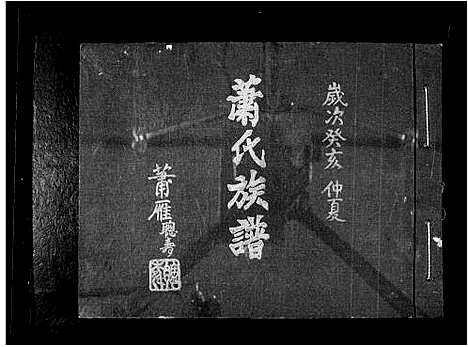 歲次癸亥 仲夏
蕭氏族譜
蕭雁聰